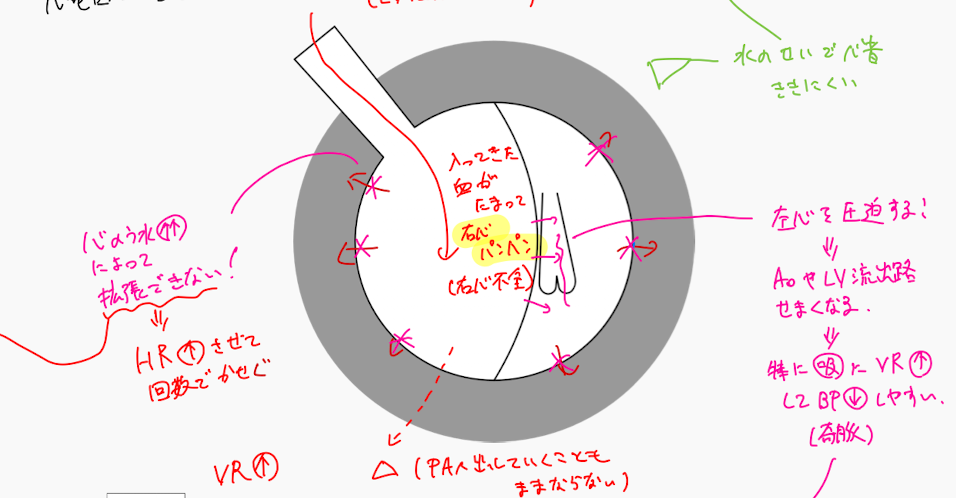 水のせいで心音
ききにくい
入ってきた
血が
たまって
右心
パンパン
(右心不全)
心のう水↑↑
によって
拡張できない!
⇓
HR↑させて
回数でかせぐ
左心を圧迫する!
⇓
AoやLV流出路
せまくなる.
⇓
特に吸にVR↑
してBP↓しやすい.
(奇脈)
VR↑
△(PAへ出していくことも
ままならない)